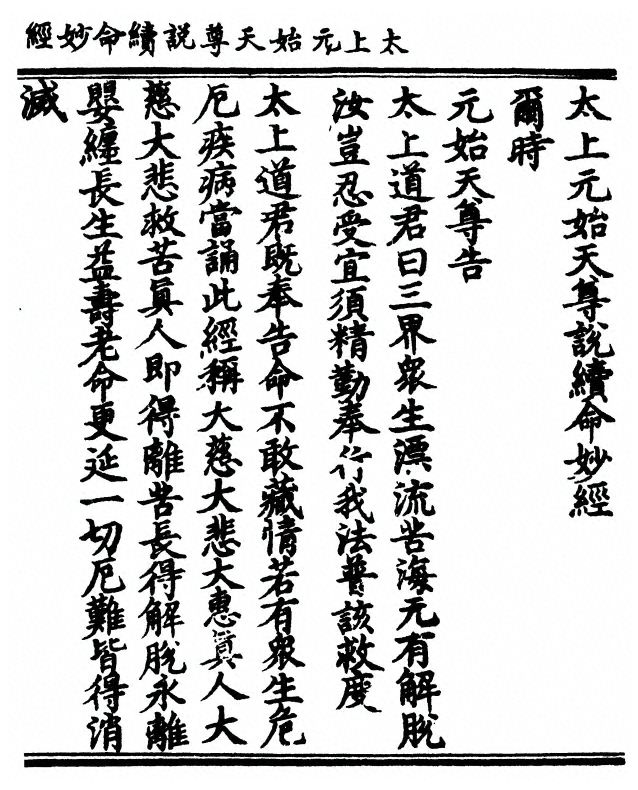 太上元始天尊說續命妙經
太上元始天尊說續命妙經
爾時
元始天尊告
太上道君曰三界衆生漂流苦海无有解脫
汝豈忍受宜須精勤奉行我法普該救度
太上道君既奉告命不敢藏情若有衆生危
厄疾病當誦此經稱大慈大悲大惠眞人大
慈大悲救苦眞人即得離苦長得解脫永離
嬰纏長生益壽老命更延一切厄難皆得消
滅